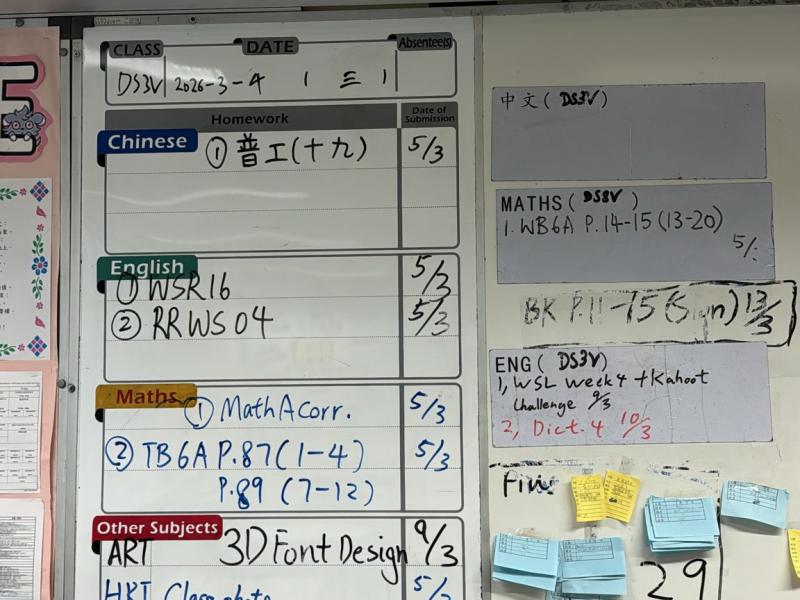 CLASS DATE Absentee(s)
DS3V 2026-3-4 1 三 1
Homework Date of Submission
Chinese ① 普工(十九) 5/3
English
① WSR16 5/3
② RRWS04 5/3
Maths ① Math A Corr. 5/3
② TB6A P.87(1-4) 5/3
P.89 (7-12)
Other Subjects
ART 3D Font Design 9/3
中文( DS3V )
MATHS( DS3V )
1. WB6A P.14-15(13-20)
5/
BK P.11-15(Sign) 13/3
ENG( DS3V )
1, WSL week 4 + Kahoot
Challenge 9/3
2, Dict. 4 10/3
29